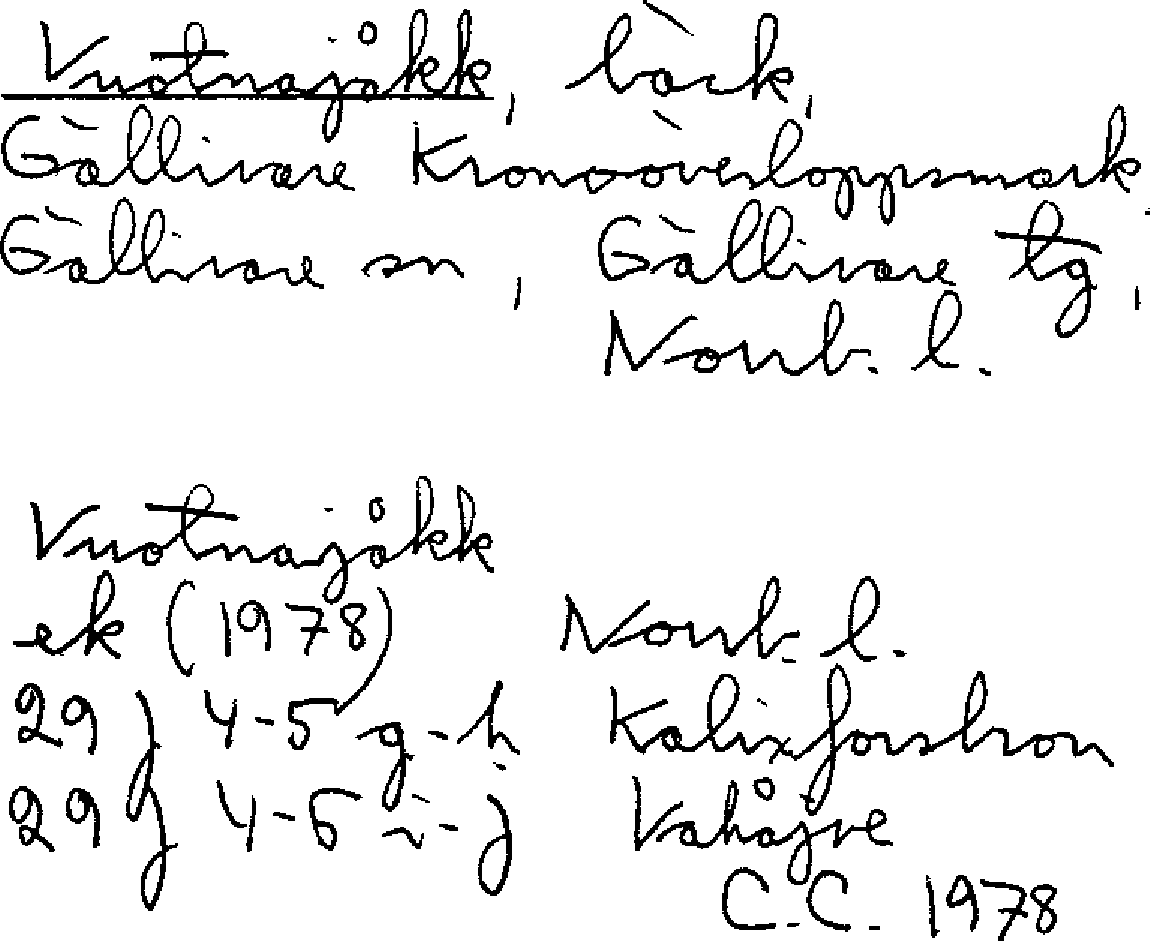 Vuotnajåkk, bäck,
Gällivare Kronoöverloppsmark
Gällivare sn, Gällivare tg,
Norrb. l.
Vuotnajåkk
ek (1978) Norrb. l.
29 J 4-5 g-h Kalixforsbron
29 J 4-5 i-j Vahåjve
C.C. 1978